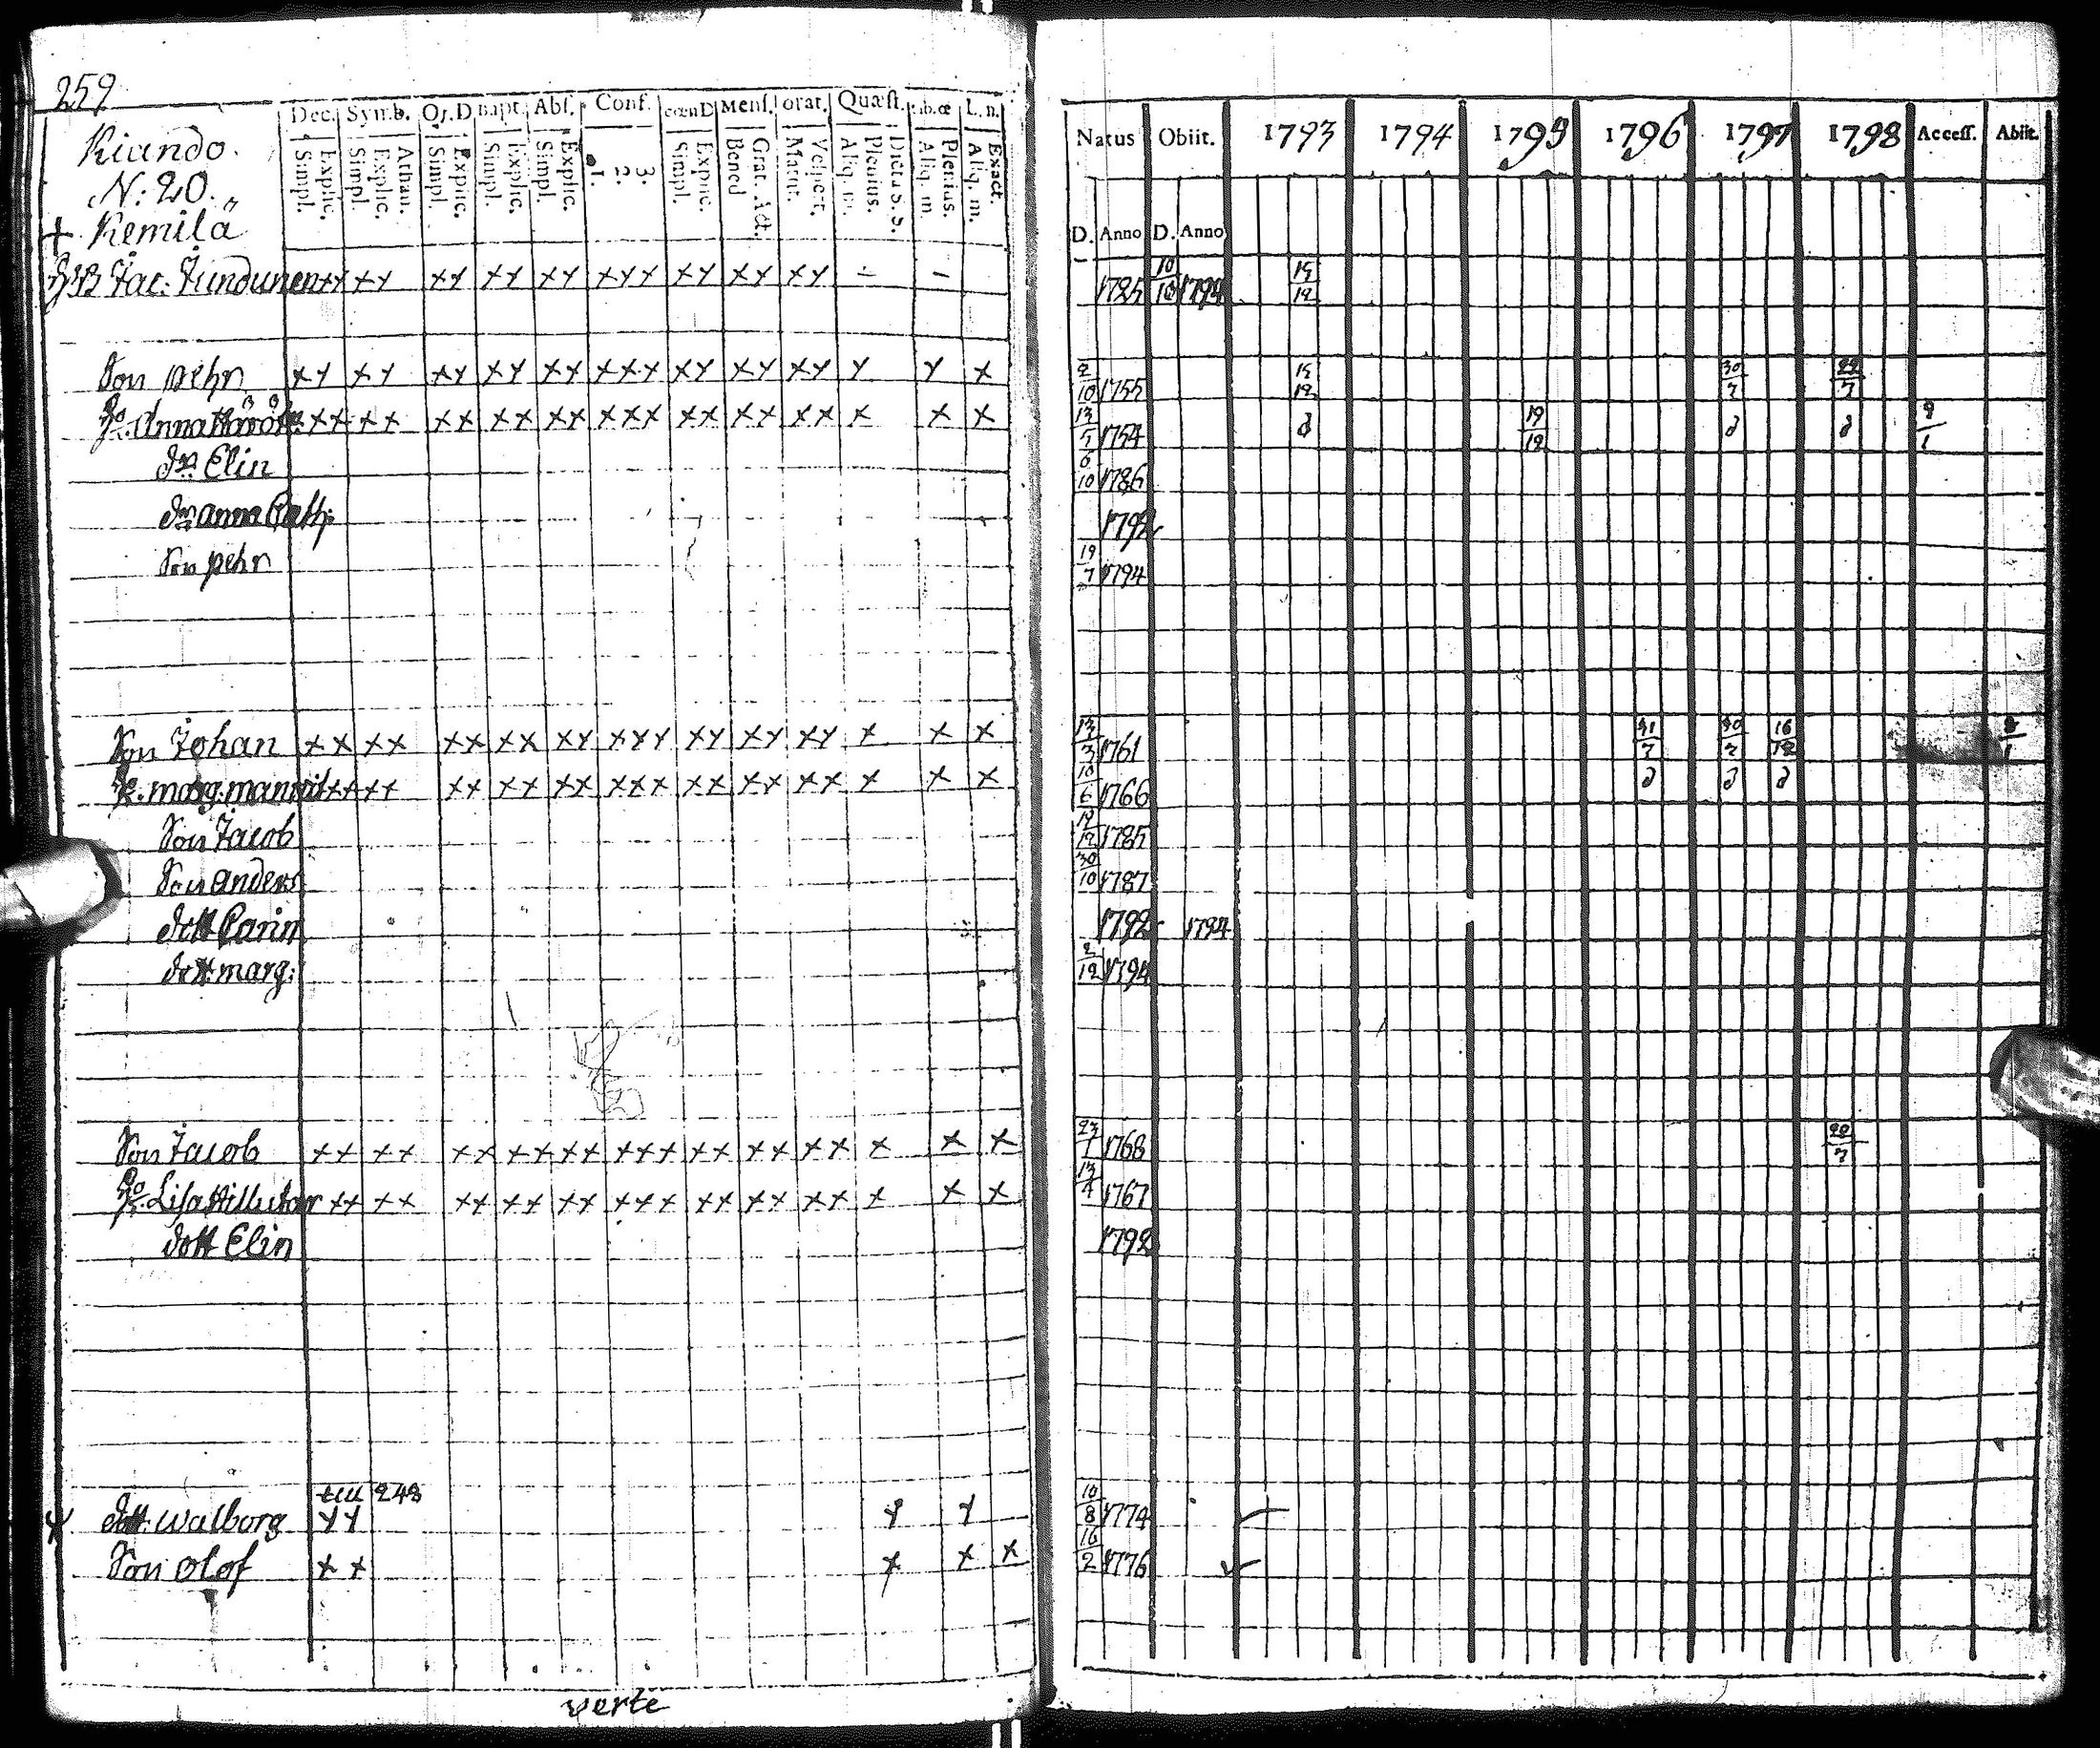 259
Dec. Symb. Or.D Bapt. Abs. Conf. cœnD Mens. orat. Quæst. L.n.
Simpl. Explic. Simpl. Explic. Athan. Simpl. Explic. Simpl. Explic. Simpl. Explic. 1. 2. 3. Simpl. Explic. Bened Grat. Act. Matut. Vespert. Aliq. m. Plenius. Dicta S. S. Aliq. m. Plenius. Aliq. m. Exact.
Natus Obiit. 1793 1794 1795 1796 1797 1798 Access. Abiit.
D. Anno D. Anno
Kiando.
N: 20.
+ Remilä
Jac: Tundunen ++ ++ ++ ++ ++ +++ ++ ++ ++ – – 1725 10/10 1794 15/12
Son pehr ×× ×× ×× ×× ×× ××× ×× ×× ×× × × × 2/10 1755 15/12 30/7 22/7
Anna ×× ×× ×× ×× ×× ××× ×× ×× ×× × × × 13/5 1754 19/12 9/1
dr Elin 6/10 1786
dr anna Cath: 1792
Son pehr 19/7 1794
Son Johan ×× ×× ×× ×× ×× ××× ×× ×× ×× × × × 13/3 1761 31/7 30/7 16/12 8/1
marg. ×× ×× ×× ×× ×× ××× ×× ×× ×× × × × 10/6 1766
Son Jacob 1785
Son anders 30/10 1787
dott Carin 1792 1794
dott marg: 2/12 1794
Son Jacob ×× ×× ×× ×× ×× ××× ×× ×× ×× × × × 23/1 1768 22/7
Lisa ×× ×× ×× ×× ×× ××× ×× ×× ×× × × × 13/4 1767
dott Elin 1792
till 248
dott. Walborg ×× × × 10/8 1774
Son olof ×× × × × 16/2 1776
verte